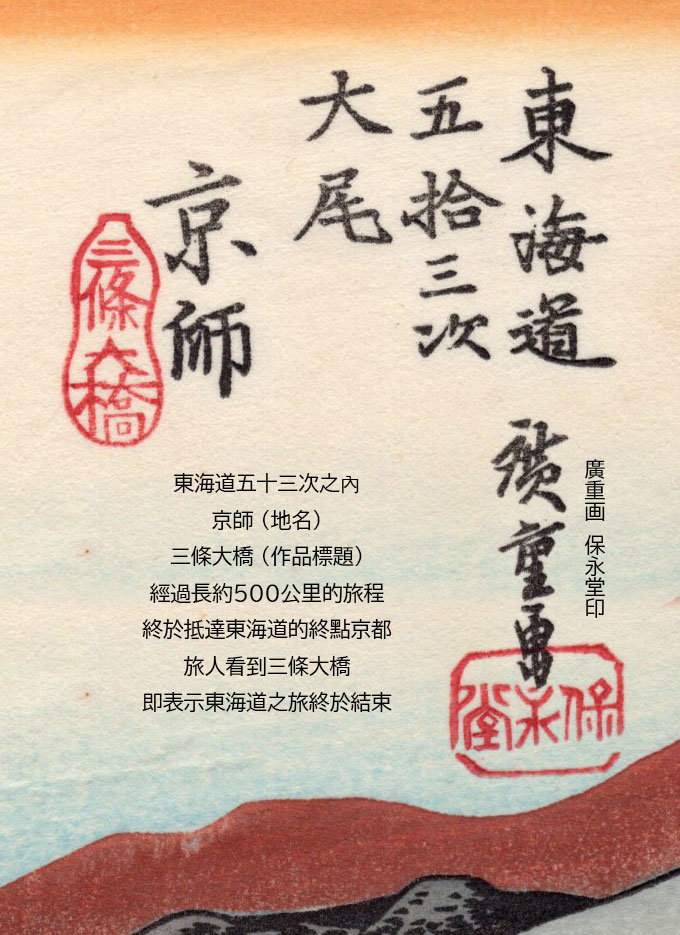 東海道
五拾三次
大尾
京師
三條大橋
廣重画
保永堂
廣重画 保永堂印
東海道五十三次之內
京師（地名）
三條大橋（作品標題）
經過長約500公里的旅程
終於抵達東海道的終點京都
旅人看到三條大橋
即表示東海道之旅終於結束